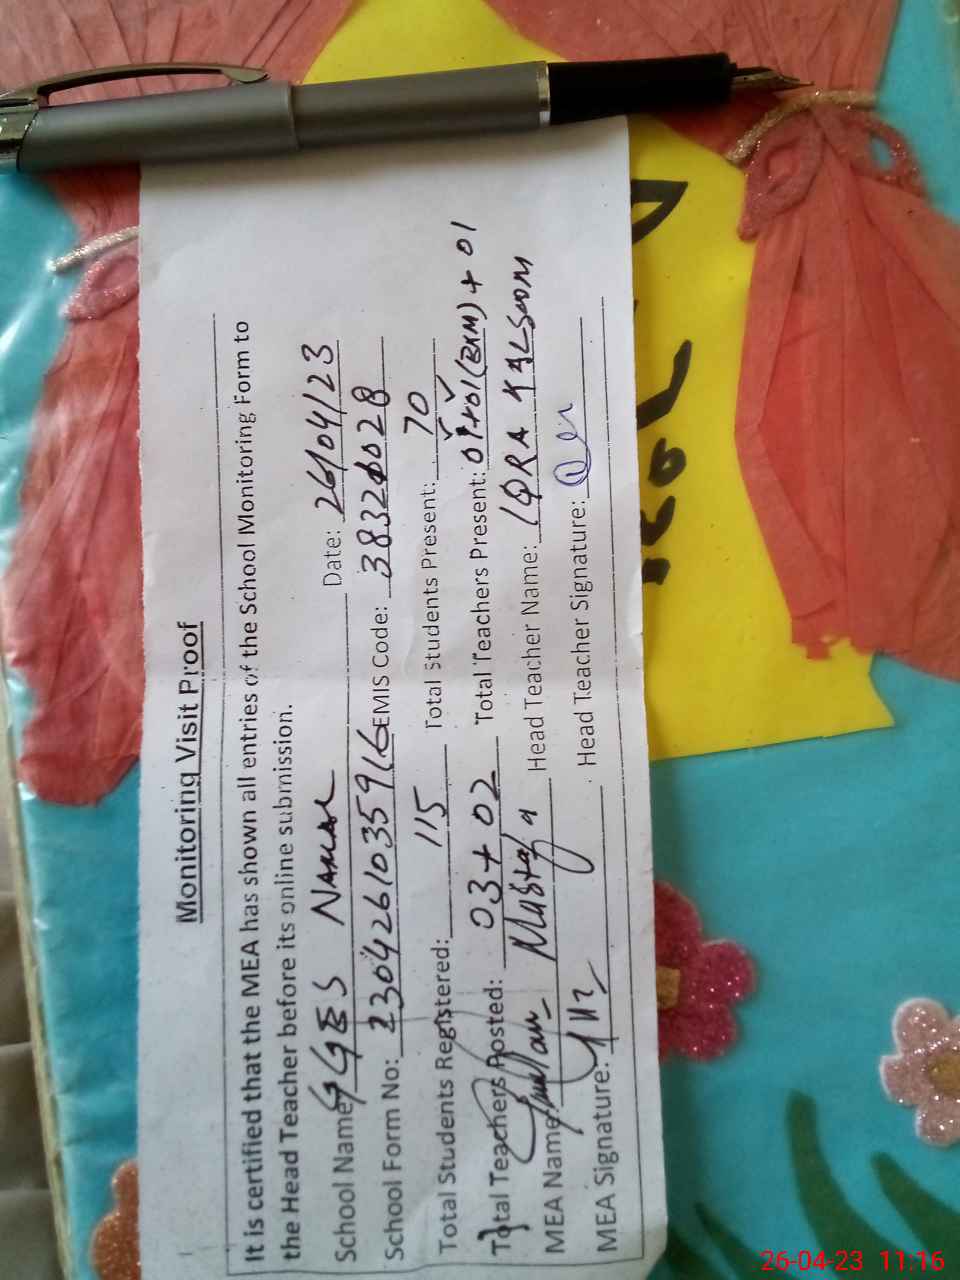 Monitoring Visit Proof
It is certified that the MEA has shown all entries of the School Monitoring Form to
the Head Teacher before its online submission.
School Name GGES Namar Date: 26/04/23
School Form No: 230426103591 EMIS Code: 38320028
Total Students Registered: 115 Total Students Present: 70
Total Teachers Posted: 03+02 Total Teachers Present: +01(BRM)+01
MEA Name: Mustafa Head Teacher Name: IQRA KALSOOM
MEA Signature: Head Teacher Signature:
26-04-23 11:16